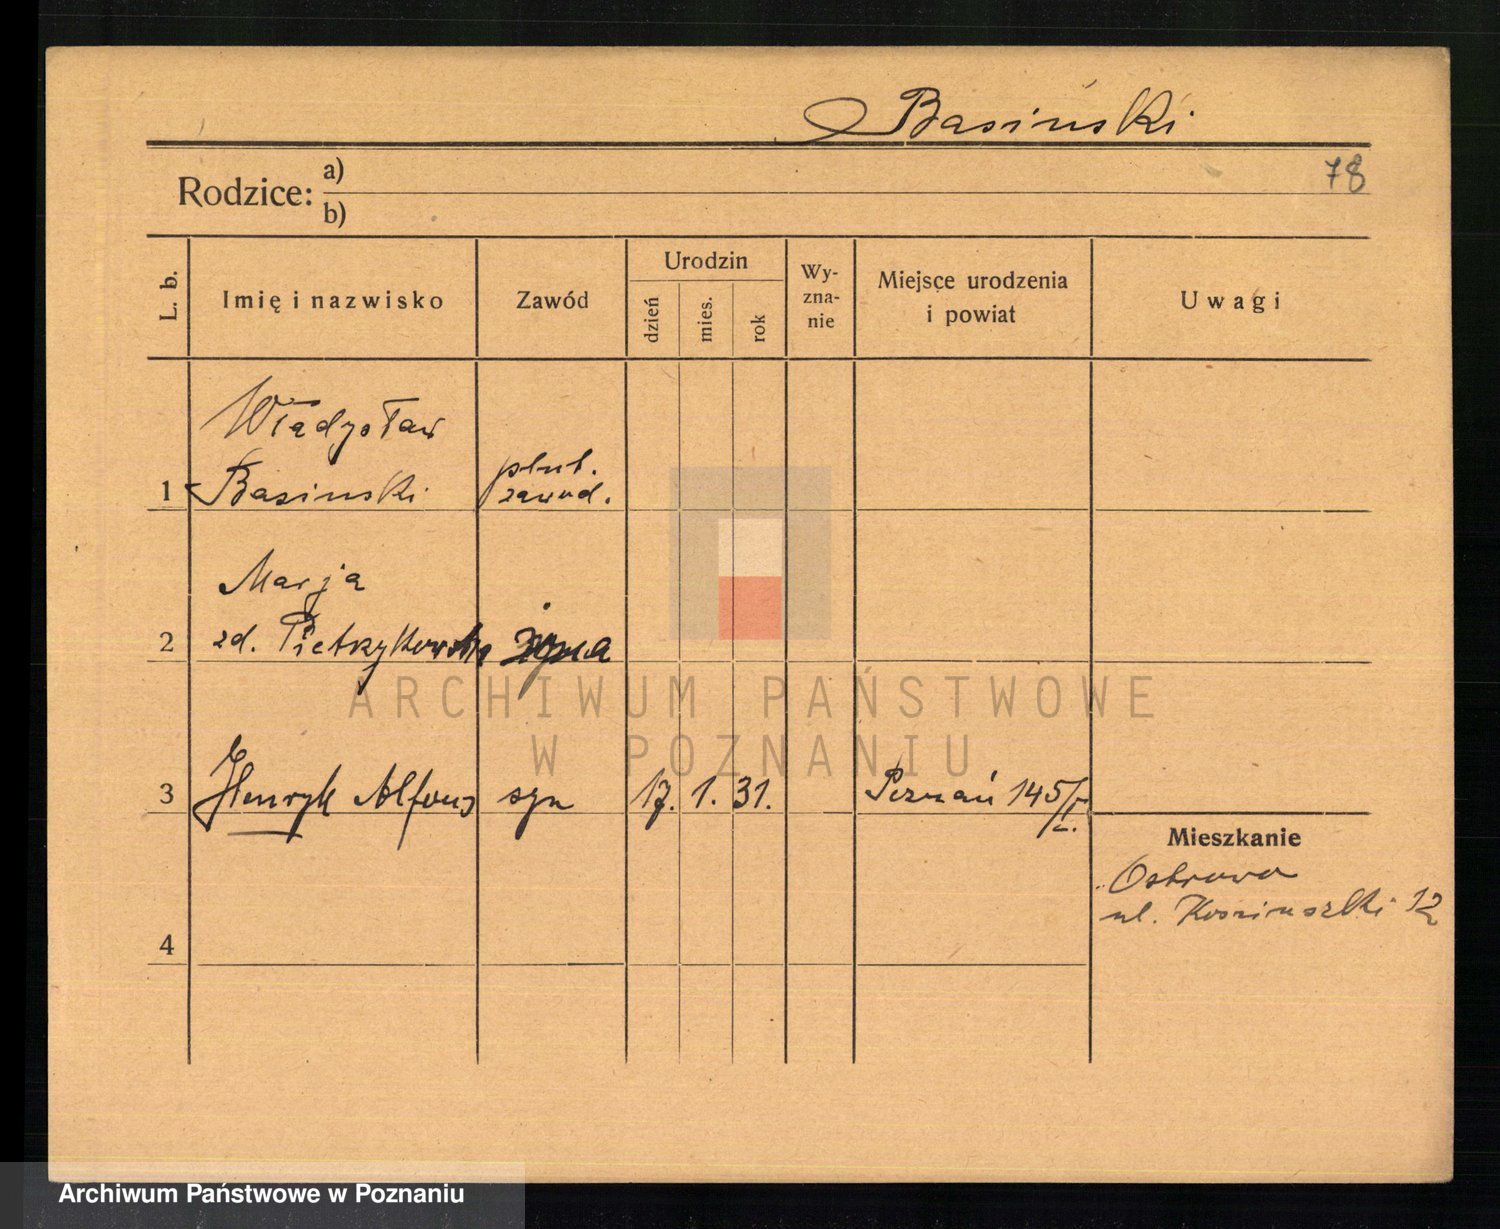 Basiński
78
Rodzice: a)
b)
L. b.
Imię i nazwisko
Zawód
Urodzin
dzień
mies.
rok
Wy-
zna-
nie
Miejsce urodzenia
i powiat
Uwagi
Władysław
1 Basinski
plut.
zawod.
Marja
2 zd. Pietrzykowska żona
3 Henryk Alfons syn 17. 1. 31. Poznań 145/I.
Mieszkanie
Ostrowo
ul. 12
4
ARCHIWUM PAŃSTWOWE
W POZNANIU
Archiwum Państwowe w Poznaniu